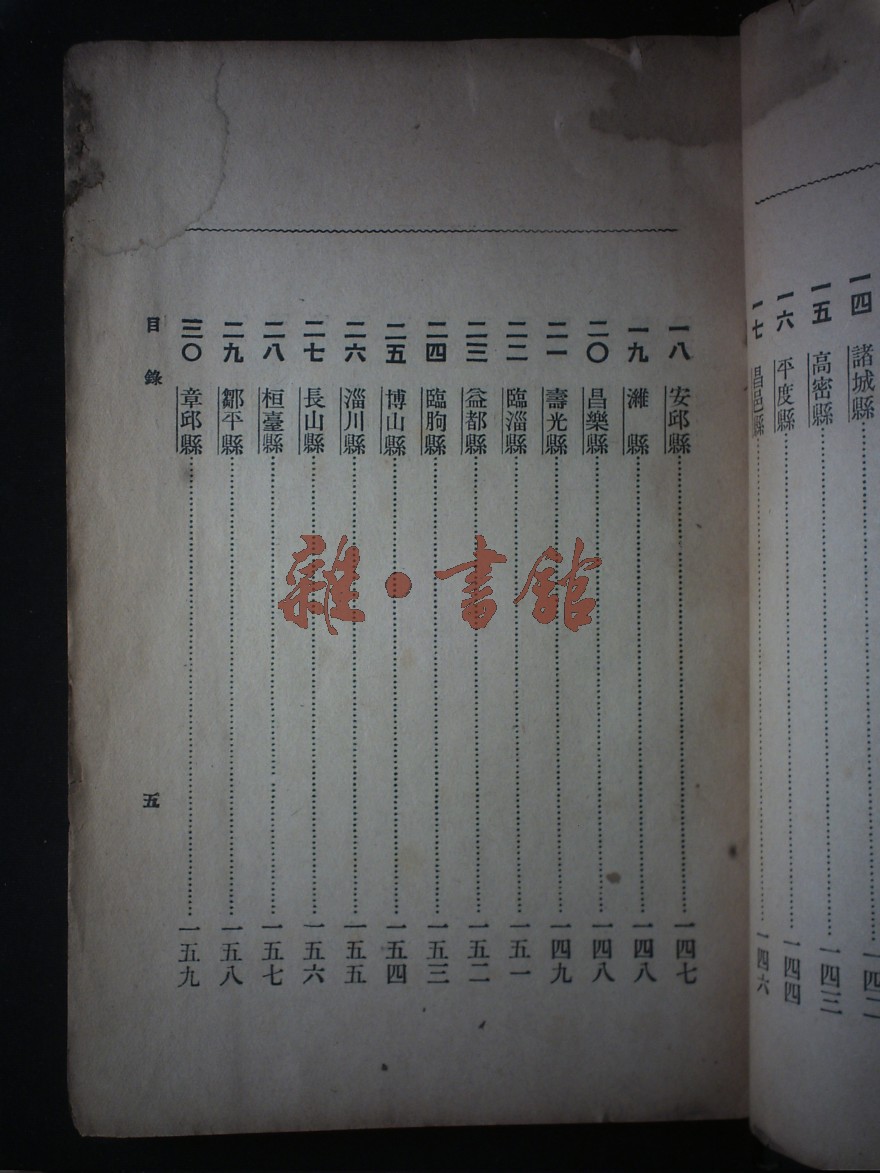 一四 諸城縣 一四二
一五 高密縣 一四三
一六 平度縣 一四四
一七 昌邑縣 一四六
一八 安邱縣 一四七
一九 濰縣 一四八
二〇 昌樂縣 一四八
二一 壽光縣 一四九
二二 臨淄縣 一五一
二三 益都縣 一五二
二四 臨朐縣 一五三
二五 博山縣 一五四
二六 淄川縣 一五五
二七 長山縣 一五六
二八 桓臺縣 一五七
二九 鄒平縣 一五八
三〇 章邱縣 一五九
目錄 五
雜·書館